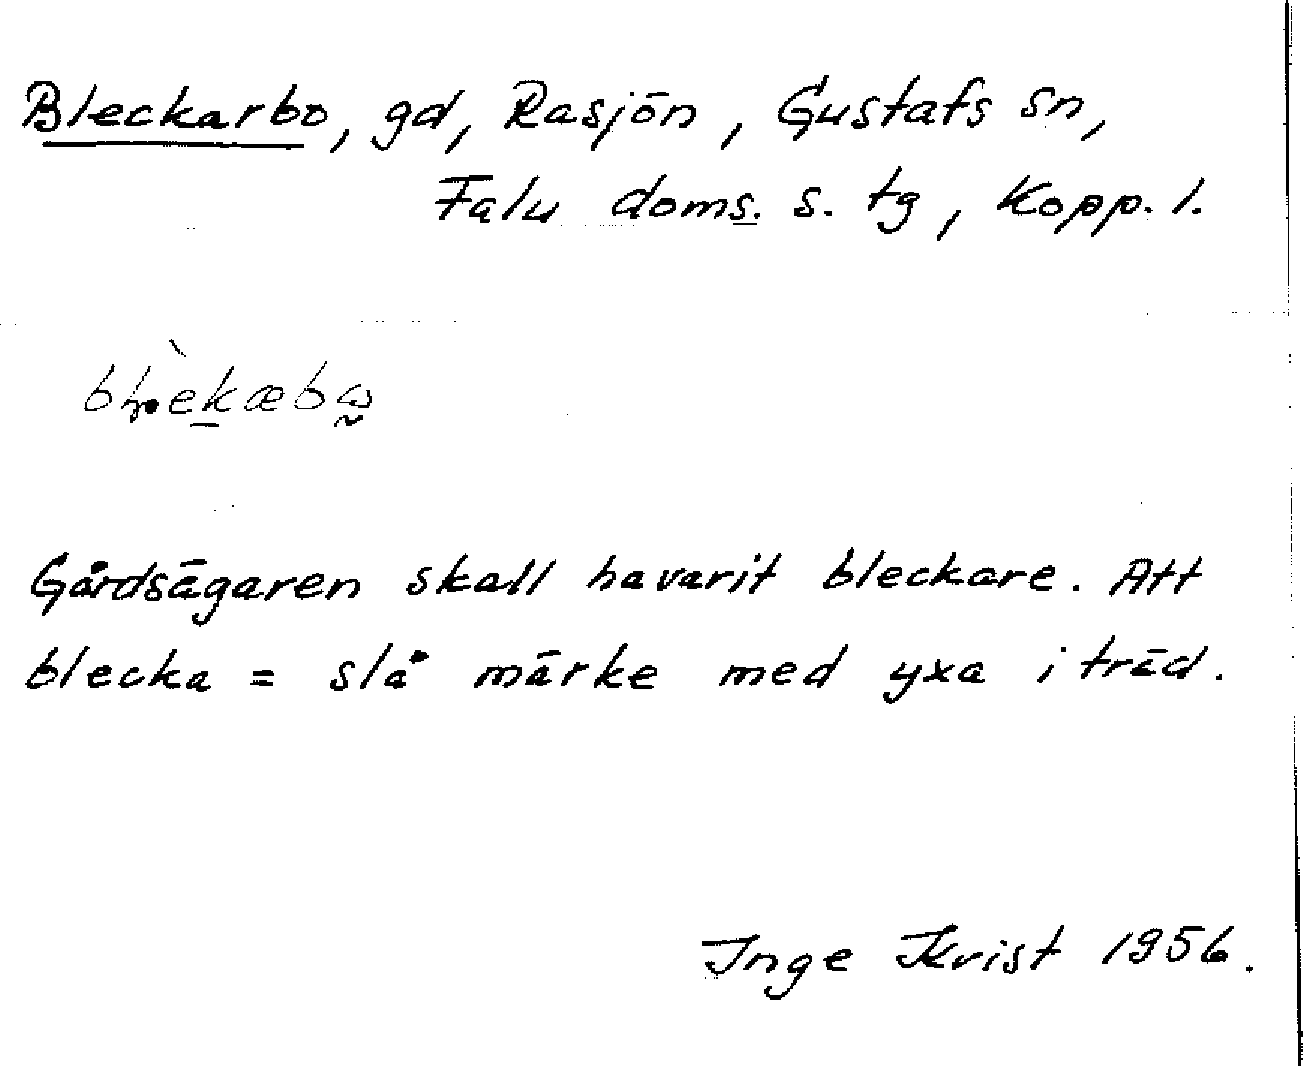 Bleckarbo, gd, Rasjön, Gustafs sn,
Falu doms. s. tg, Kopp. l.
Gårdsägaren skall ha varit bleckare. Att
blecka = slå märke med yxa i träd.
Inge Krist 1956.